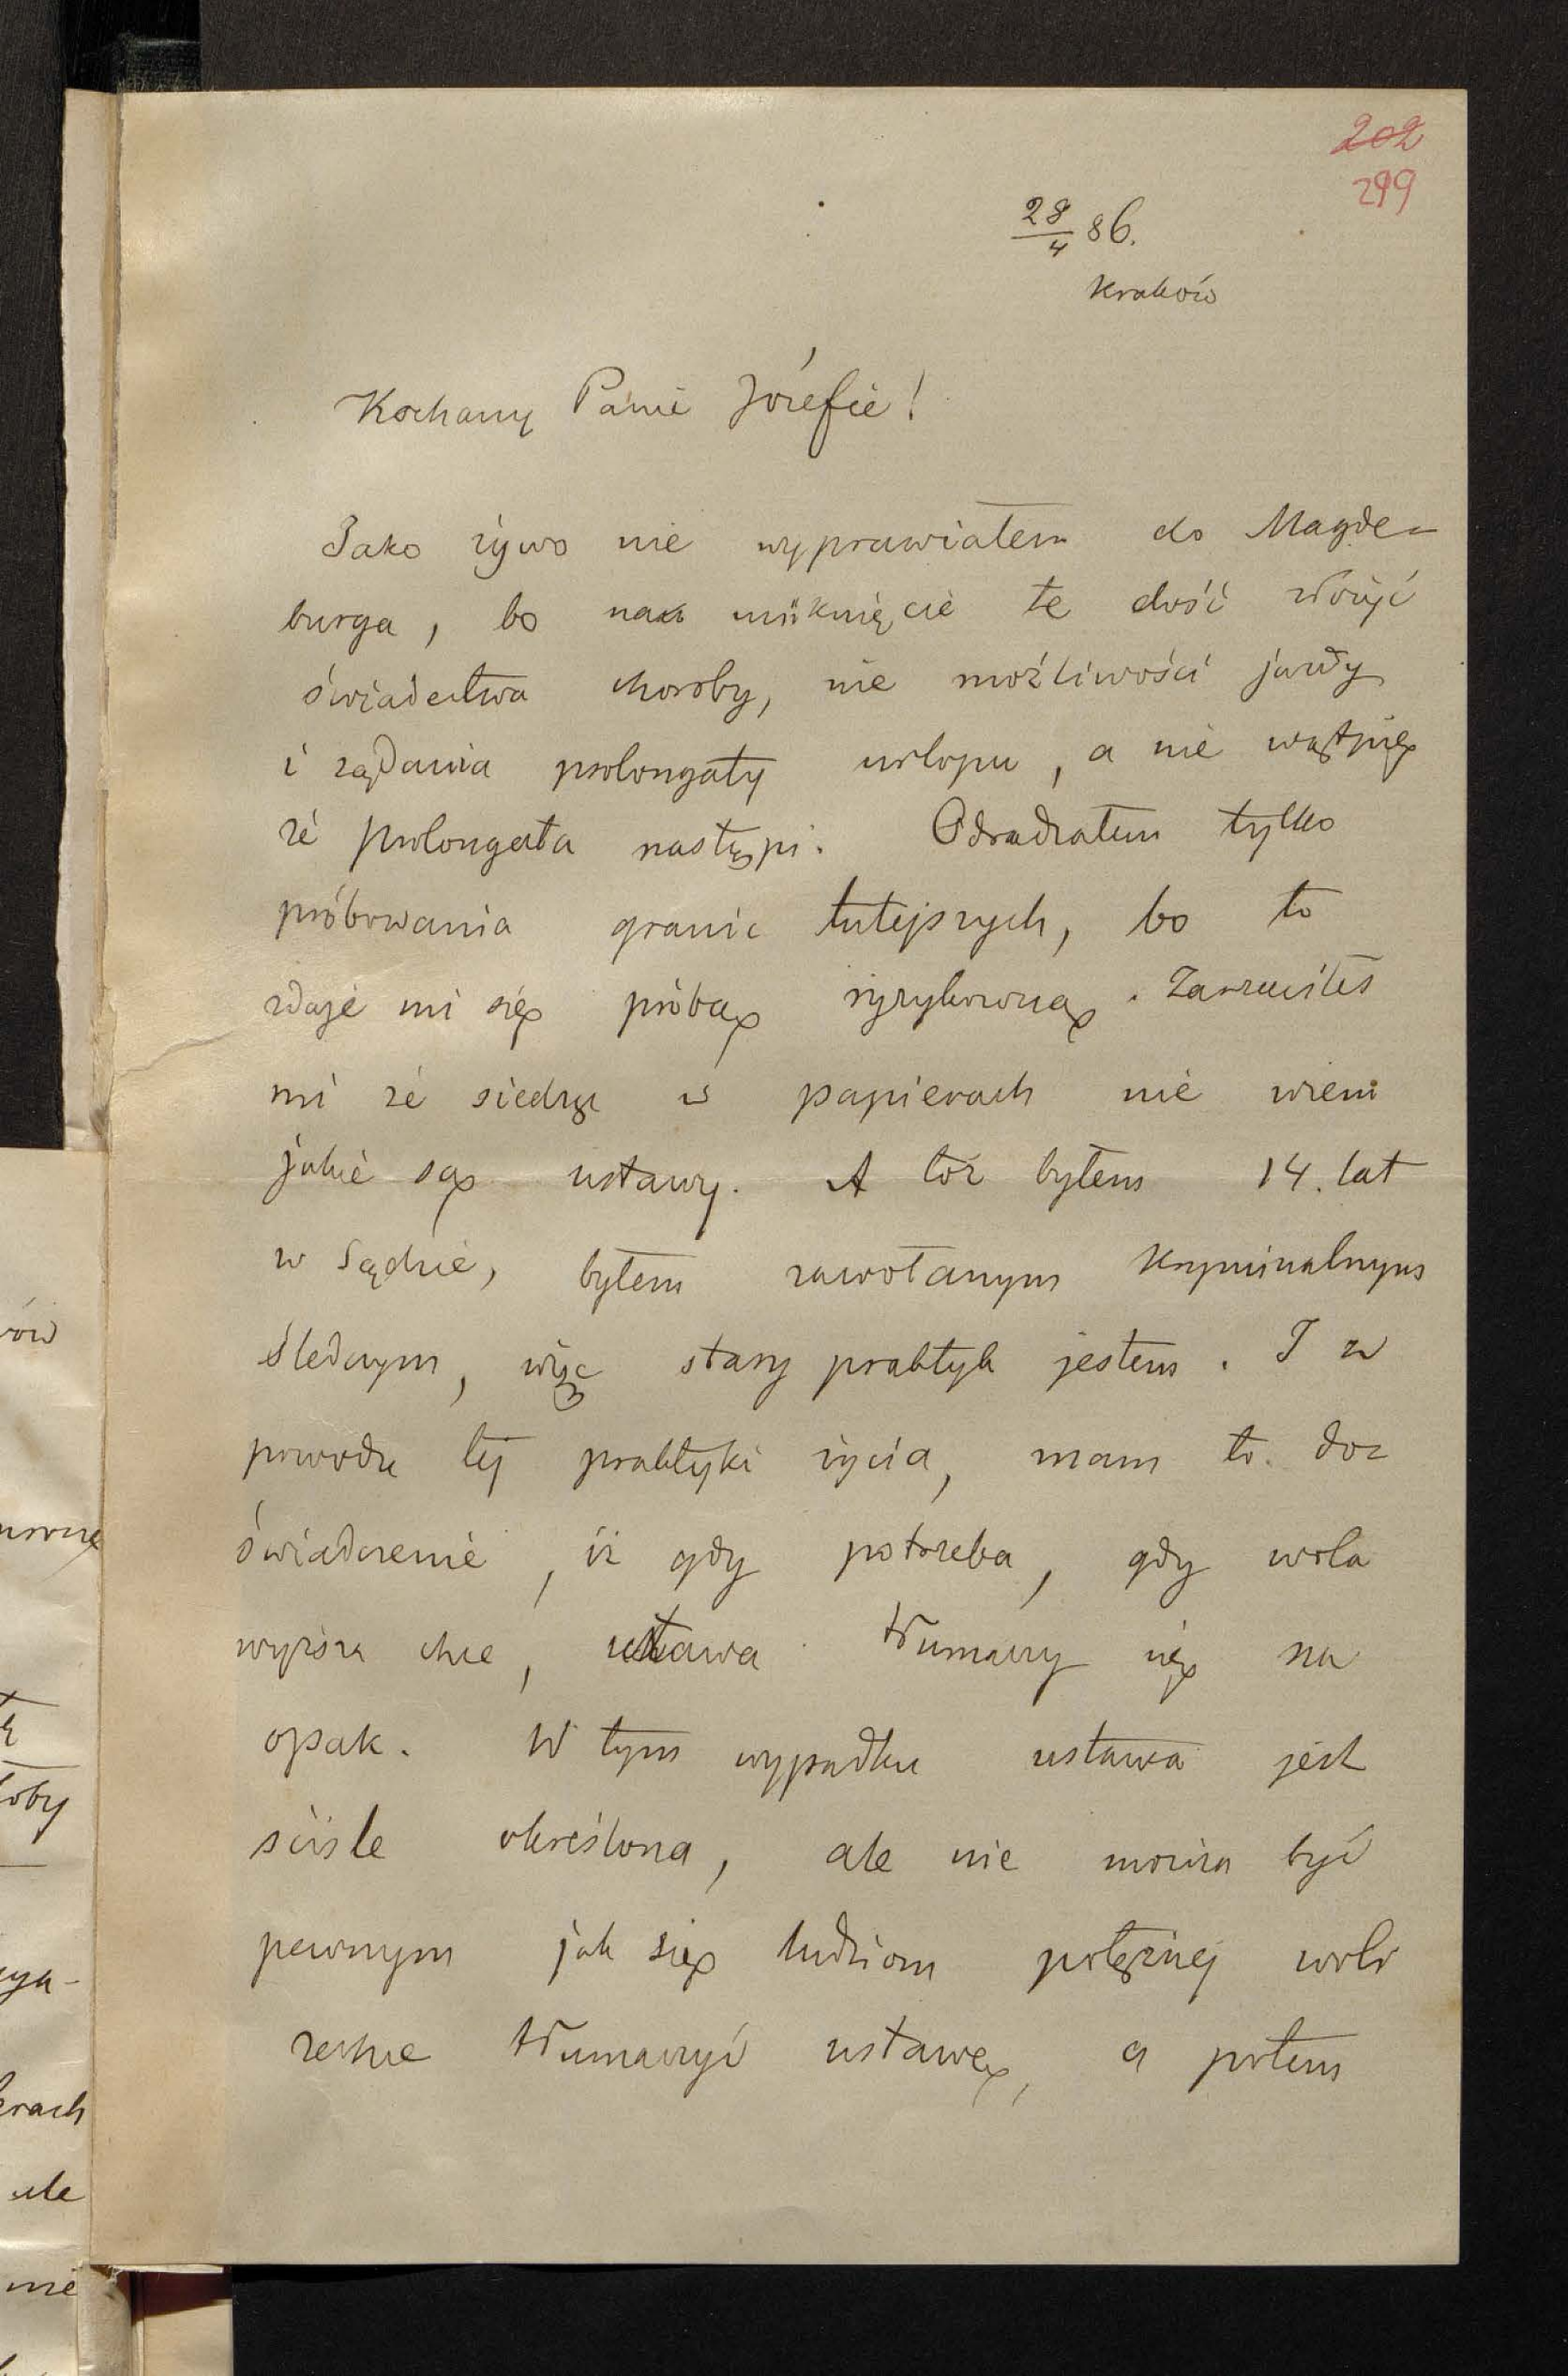 202
299
28/4 86.
Kraków
Kochany Panie Józefie!
Jako żywo nie wyprawiałem do Magde=
burga, bo na uniknięcie te dość złożyć
świadectwa choroby, nie możliwości jazdy
i żądania prolongaty urlopu, a nie wątpię
że prolongata nastąpi. Odradzałem tylko
próbowania granic tutejszych, bo to
zdaje mi się próbą ryzykowną. Zarzuciłeś
mi że siedzę w papierach nie wiem
jakie są ustawy. A toż byłem 14. lat
w Sądzie, byłem zawołanym kryminalnym
śledczym, więc stary praktyk jestem. I z
powodu tej praktyki życia, mam to do=
świadczenie, iż gdy potrzeba, gdy wola
wyższa chce, ustawa tłumaczy się na
opak. W tym wypadku ustawa jest
ściśle określona, ale nie można być
pewnym jak się ludziom potężnej woli
zechce tłumaczyć ustawę, a potem
ów
oby
rach
ale
nie